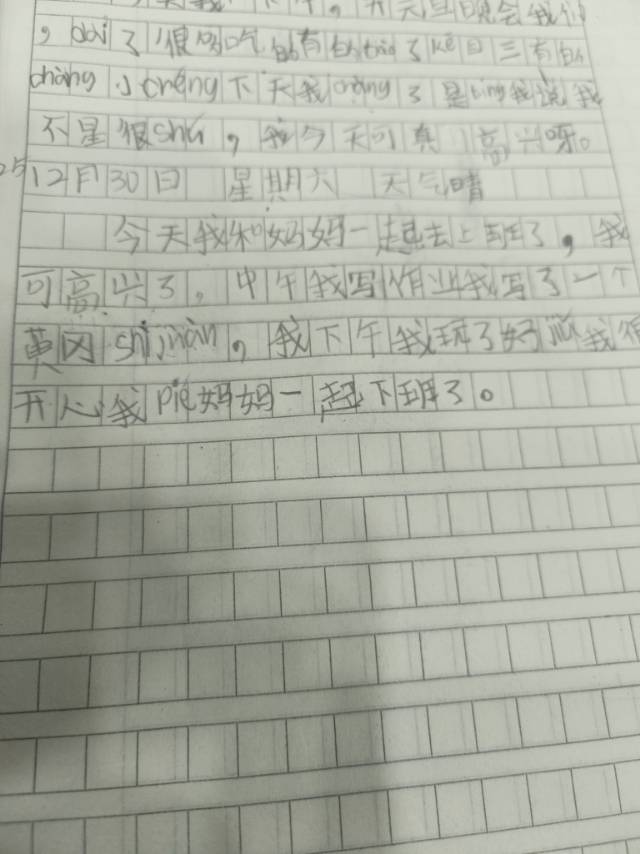 下午,开元旦晚会我们
,dài了很多吃的有的tiào了kē目三有的
chàng小chéng下天我chàng了是tīng我说我
不是很shú,我今天可真高兴呀。
25 12月30日 星期六 天气晴
今天我和妈妈一起去上班了,我
可高兴了,中午我写作业我写了一个
黄冈shìjuàn,我下午我玩了好jiǔ我很
开心我piē妈妈一起下班了。